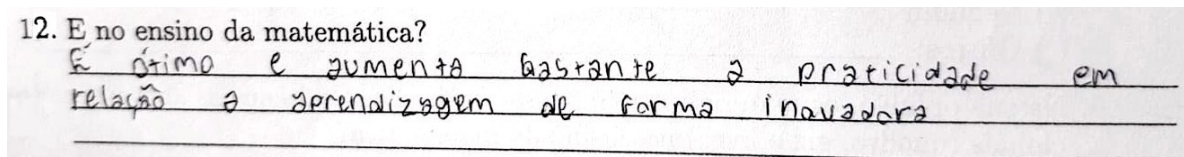 12. E no ensino da matemática?
É ótimo e aumenta bastante a praticidade em
relação a aprendizagem de forma inovadora